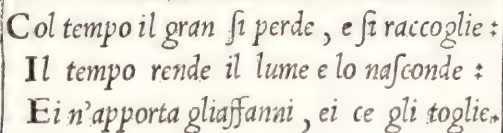 Col tempo il gran ſi perde, e ſi raccoglie:
Il tempo rende il lume e lo naſconde:
Ei n'apporta gliaffanni, ei ce gli toglie.